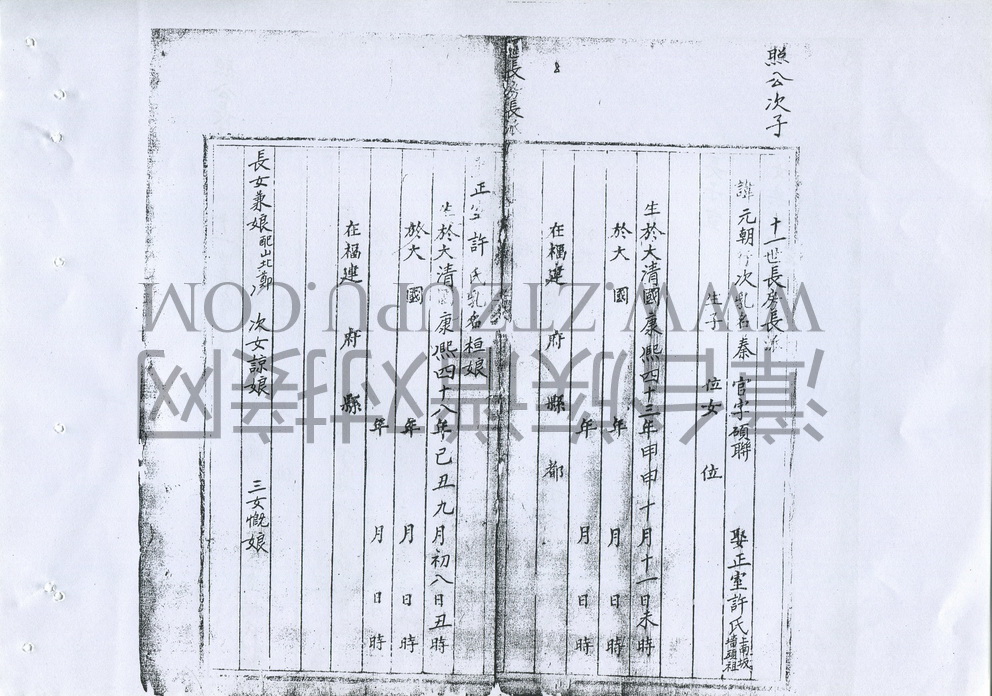 照公次子
十一世長房長派
諱元朝行次乳名泰 官字碩聯 娶正室許氏
生子 位女 位
生於大清國康熙四十三年申申十月十一日未時
於大 國 年 月 日 時
年 月 日 時
在福建 府 縣 都
世長房長派
正室許氏乳名桓娘
生於大清國康熙四十八年己丑九月初八日丑時
於大 國 年 月 日 時
年 月 日 時
在福建 府 縣
長女兼娘配山北鄭 次女諒娘 三女慨娘
WWW.ZTZUPU.COM